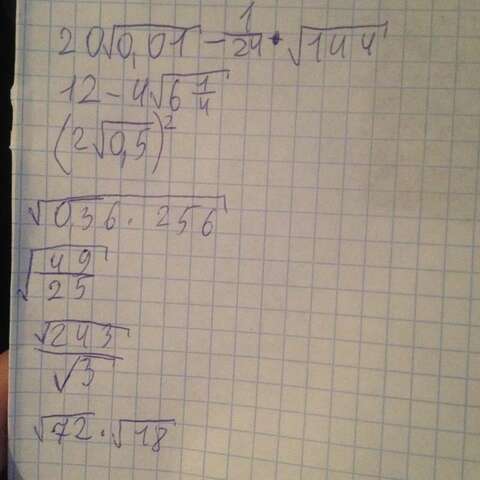 20√0,01 - 1/24 · √144
12 - 4√6 1/4
(2√0,5)²
√0,36 · 256
√49/25
√243/√3
√72 · √18